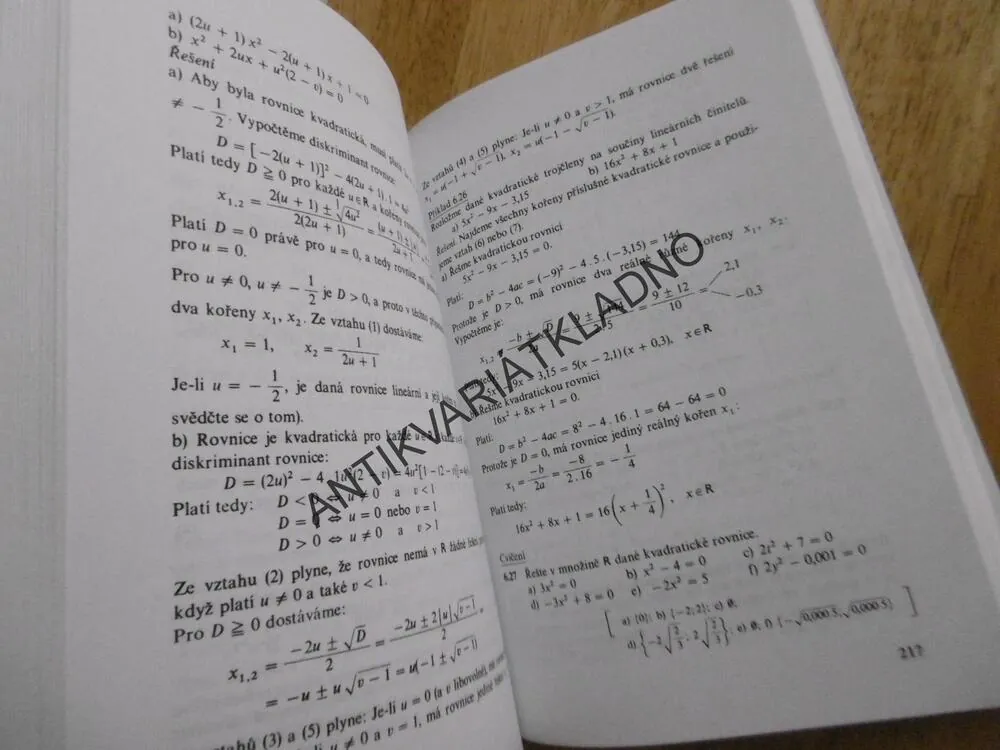 a) (2u + 1) x² − 2(u + 1) x + 1 = 0
b) x² + 2ux + u²(2 − v) = 0
Řešení
a) Aby byla rovnice kvadratická, musí
≠ − 1/2. Vypočtěme diskriminant rovnice:
D = [−2(u + 1)]² − 4(2u + 1) . 1 = 4u²
Platí tedy D ≧ 0 pro každé u∈R a kořeny
x₁,₂ = (2(u + 1) ± √4u²)/(2(2u + 1)) =
Platí D = 0 právě pro u = 0, a tedy rovnice má
pro u = 0.
Pro u ≠ 0, u ≠ − 1/2 je D > 0, a proto v
dva kořeny x₁, x₂. Ze vztahu (1) dostáváme:
x₁ = 1, x₂ = 1/(2u + 1)
Je-li u = − 1/2, je daná rovnice lineární a její
svědčte se o tom).
b) Rovnice je kvadratická pro každé u∈R
diskriminant rovnice:
D = (2u)² − 4 . 1u²(2 − v) = 4u²[1 − (2 − v)] =
Platí tedy: D < 0 ⇔ u ≠ 0 a v < 1
D = 0 ⇔ u = 0 nebo v = 1
D > 0 ⇔ u ≠ 0 a v > 1
Ze vztahu (2) plyne, že rovnice nemá v R žádné
když platí u ≠ 0 a také v < 1.
Pro D ≧ 0 dostáváme:
x₁,₂ = (−2u ± √D)/2 = (−2u ± 2|u|√(v − 1))/2 =
= −u ± u√(v − 1) = u(−1 ± √(v − 1))
vztahů (3) a (5) plyne: Je-li u = 0 (a v libovolné), má
u ≠ 0 a v = 1, má rovnice jediné
Ze vztahů (4) a (5) plyne: Je-li u ≠ 0 a v > 1, má rovnice dvě řešení
x₁ = u(−1 + √(v − 1)), x₂ = u(−1 − √(v − 1)).
Příklad 6.26
Rozložme dané kvadratické trojčleny na součiny lineárních činitelů.
a) 5x² − 9x − 3,15 b) 16x² + 8x + 1
Řešení. Najdeme všechny kořeny příslušné kvadratické rovnice a použi-
jeme vztah (6) nebo (7).
a) Řešme kvadratickou rovnici
5x² − 9x − 3,15 = 0.
Platí: D = b² − 4ac = (−9)² − 4 . 5 . (−3,15) = 144
Protože je D > 0, má rovnice dva reálné různé kořeny x₁, x₂.
Vypočtěme je:
x₁,₂ = (−b ± √D)/2a = (9 ± √144)/2.5 = (9 ± 12)/10 = 2,1 −0,3
tedy:
5x² − 9x − 3,15 = 5(x − 2,1)(x + 0,3), x∈R
b) Řešme kvadratickou rovnici
16x² + 8x + 1 = 0.
Platí: D = b² − 4ac = 8² − 4 . 16 . 1 = 64 − 64 = 0
Protože je D = 0, má rovnice jediný reálný kořen x₁:
x₁ = −b/2a = −8/2 . 16 = − 1/4
Platí tedy:
16x² + 8x + 1 = 16(x + 1/4)², x∈R
Cvičení
6.27 Řešte v množině R dané kvadratické rovnice.
a) 3x² = 0 b) x² − 4 = 0 c) 2t² + 7 = 0
d) −3x² + 8 = 0 e) −2x² = 5 f) 2y² − 0,001 = 0
[a) {0}; b) {−2; 2}; c) ∅;
d) {−2√(2/3), 2√(2/3)}; e) ∅; f) {−√0,000 5, √0,000 5}]
217
ANTIKVARIÁTKLADNO